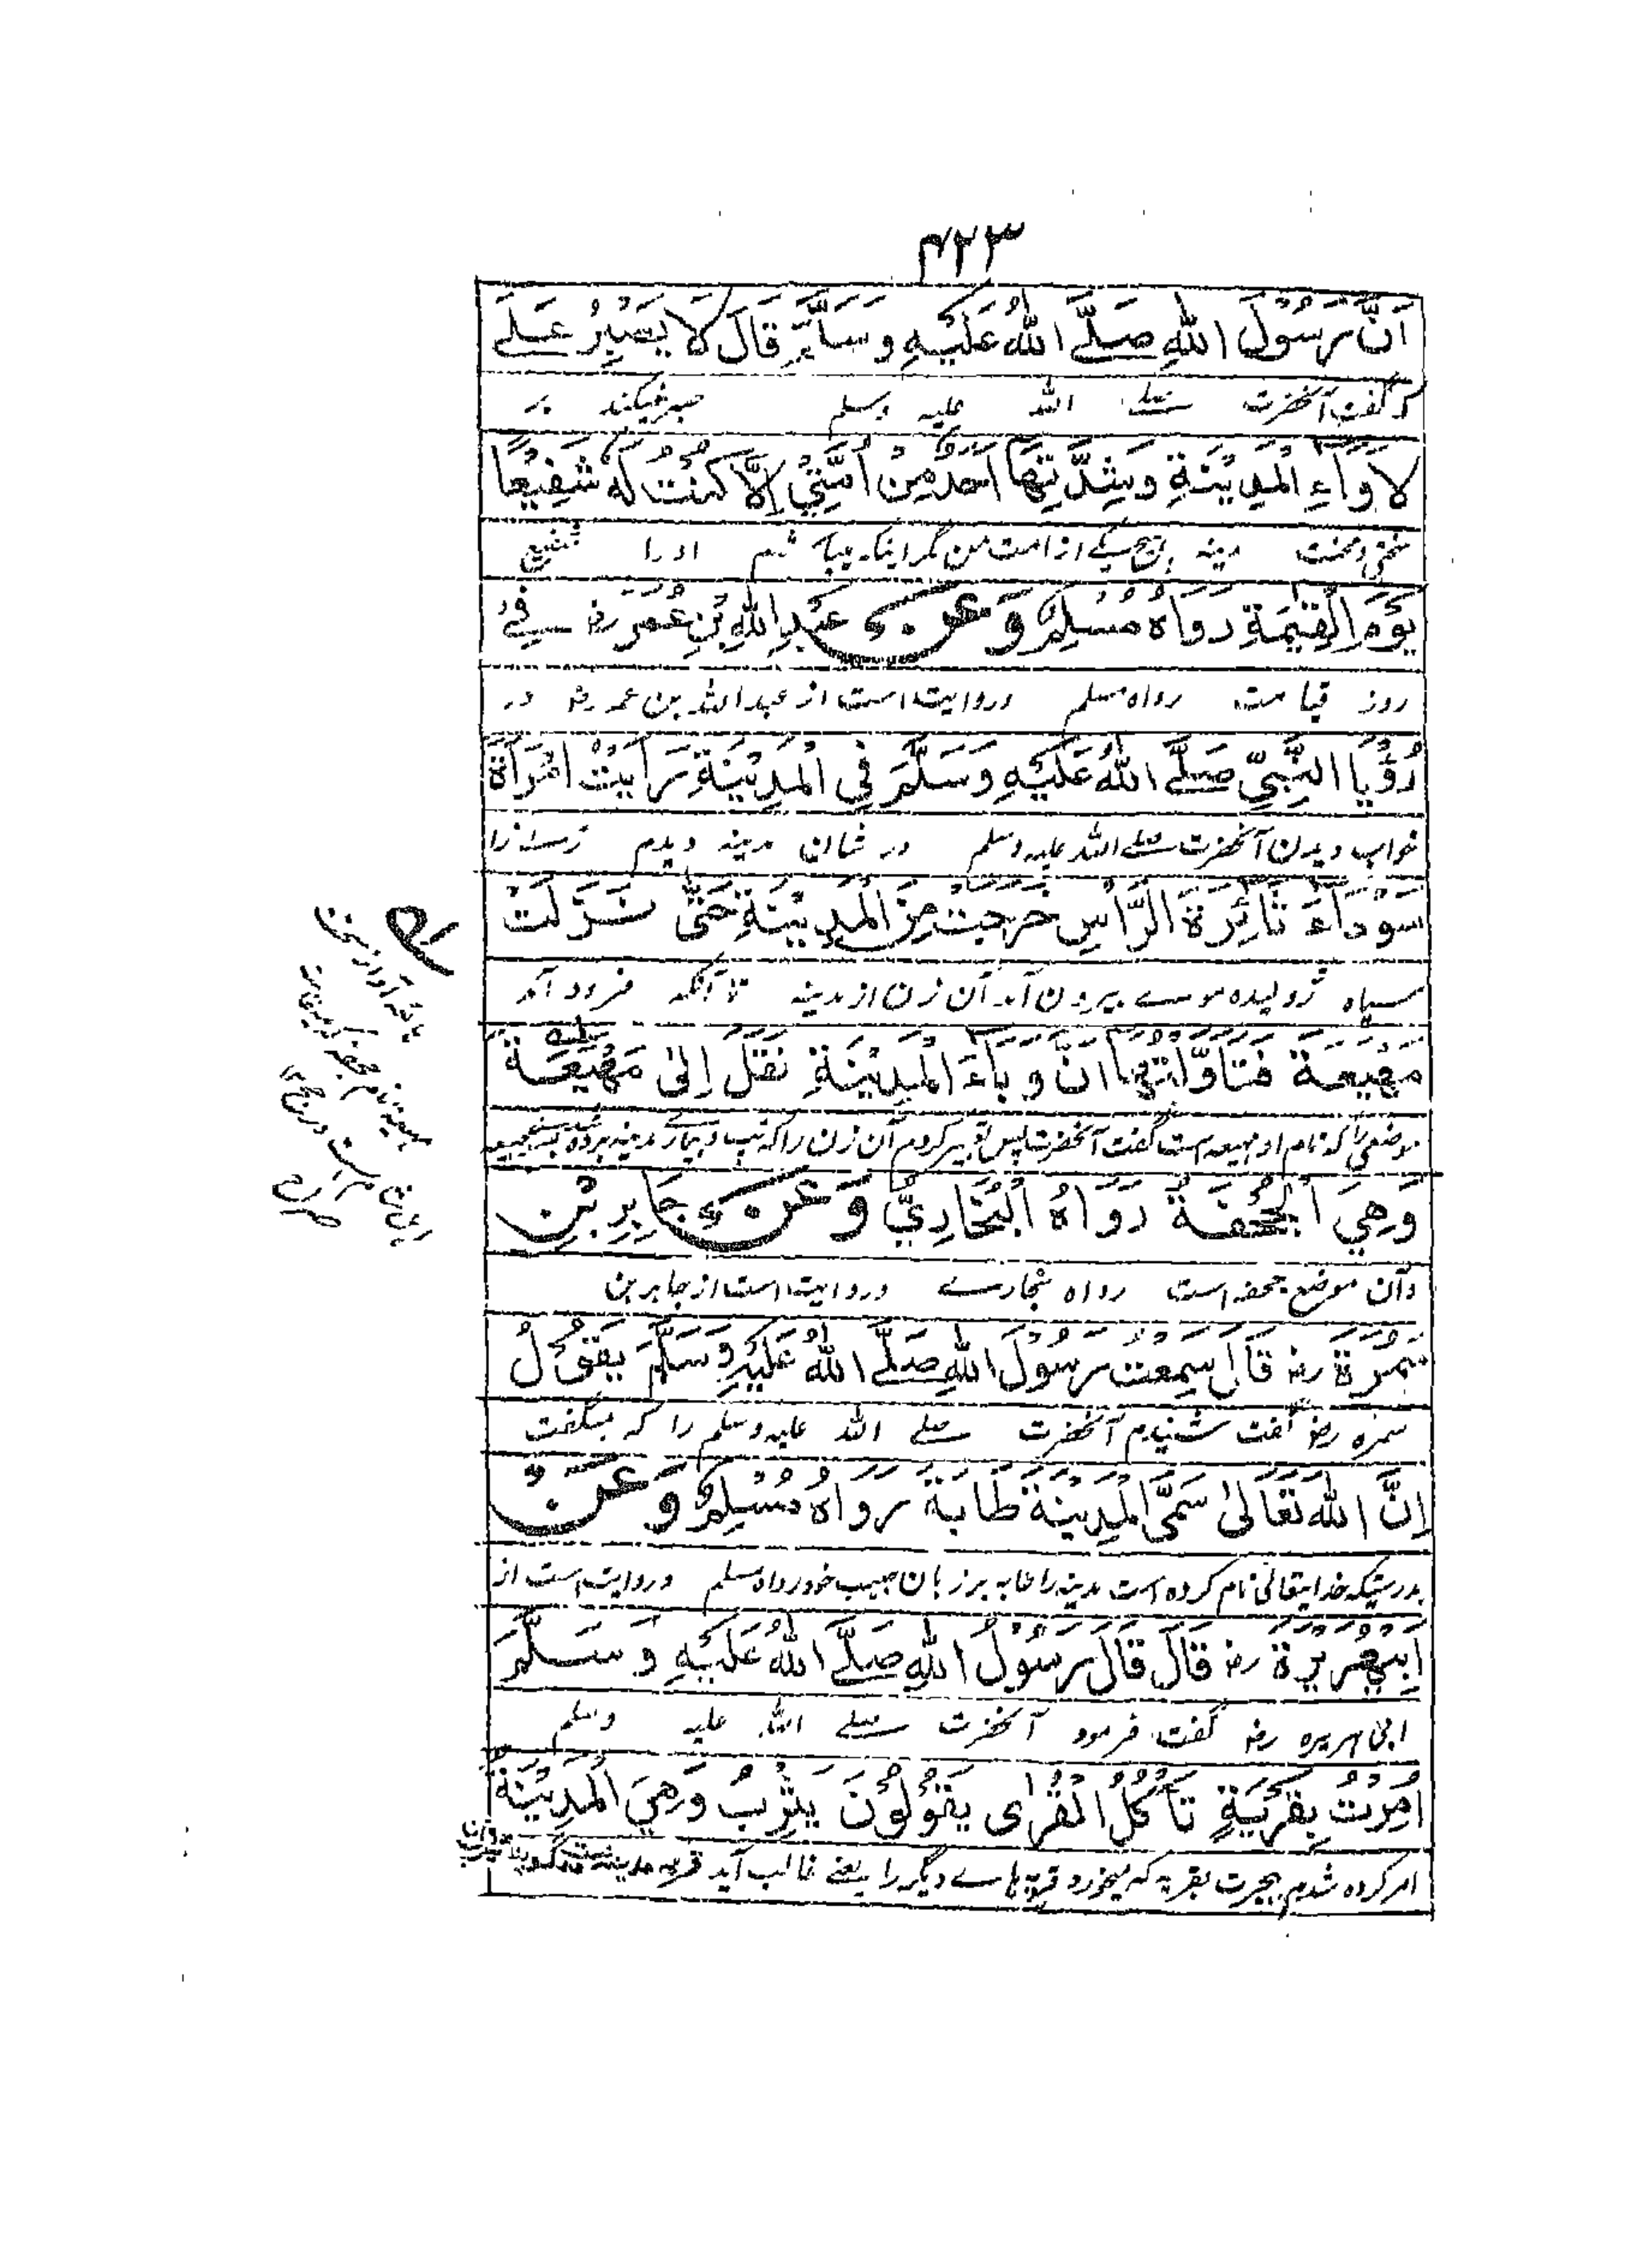 ۴۲۳
اَنَّ رَسُوْلَ اللهِ صَلَّے اللهُ عَلَيْهِ وَسَلَّمَ قَالَ لَا يَصْبِرُ عَلٰے
که گفت آنحضرت صلے الله علیه وسلم صبر نمیکند بر
لَاْوَآءِ الْمَدِيْنَةِ وَشِدَّتِهَا اَحَدٌ مِنْ اُمَّتِيْ اِلَّا كُنْتُ لَهُ شَفِيْعًا
سختی و محنت مدینه هیچ یکے از امت من مگر اینکه میباشم او را شفیع
يَوْمَ الْقِيٰمَةِ رَوَاهُ مُسْلِمٌ وَعَنْ عَبْدِ اللهِ بْنِ عُمَرَ رض فِےْ
روز قیامت رواه مسلم و روایت است از عبد الله بن عمر رض در
رُؤْيَا النَّبِيِّ صَلَّے اللهُ عَلَيْهِ وَسَلَّمَ فِى الْمَدِيْنَةِ رَاَيْتُ امْرَاَةً
خواب دیدن آنحضرت صلے الله علیه وسلم در شان مدینه دیدم زنے را
سَوْدَآءَ ثَائِرَةَ الرَّاْسِ خَرَجَتْ مِنَ الْمَدِيْنَةِ حَتّٰى نَزَلَتْ
سیاه ژولیده موے بیرون آمد آن زن از مدینه تا آنکه فرود آمد
مَهْيَعَةَ فَتَاَوَّلْتُهَا اَنَّ وَبَاءَ الْمَدِيْنَةِ نُقِلَ اِلٰى مَهْيَعَةَ
موضعی را که نام او مهیعه است گفت آنحضرت پس تعبیر کردم آن زن را که تب و بیماری مدینه برده شد بمهیعه
وَهِيَ الْجُحْفَةُ رَوَاهُ الْبُخَارِيُّ وَعَنْ جَابِرِ بْنِ
و آن موضع جحفه است رواه بخارے و روایت است از جابر بن
سَمُرَةَ رض قَالَ سَمِعْتُ رَسُوْلَ اللهِ صَلَّے اللهُ عَلَيْهِ وَسَلَّمَ يَقُوْلُ
سمره رض گفت شنیدم آنحضرت صلے الله علیه وسلم را که میگفت
اِنَّ اللهَ تَعَالٰى سَمَّى الْمَدِيْنَةَ طَابَةَ رَوَاهُ مُسْلِمٌ وَعَنْ
بدرستیکه خدایتعالی نام کرده است مدینه را طابه بر زبان حبیب خود رواه مسلم و روایت است از
اَبِيْ هُرَيْرَةَ رض قَالَ قَالَ رَسُوْلُ اللهِ صَلَّے اللهُ عَلَيْهِ وَسَلَّمَ
ابی هریره رض گفت فرمود آنحضرت صلے الله علیه وسلم
اُمِرْتُ بِقَرْيَةٍ تَاْكُلُ الْقُرٰى يَقُوْلُوْنَ يَثْرِبُ وَهِيَ الْمَدِيْنَةُ
امر کرده شدم بهجرت بقریه که میخورد قریه هاے دیگر را یعنے غالب آید